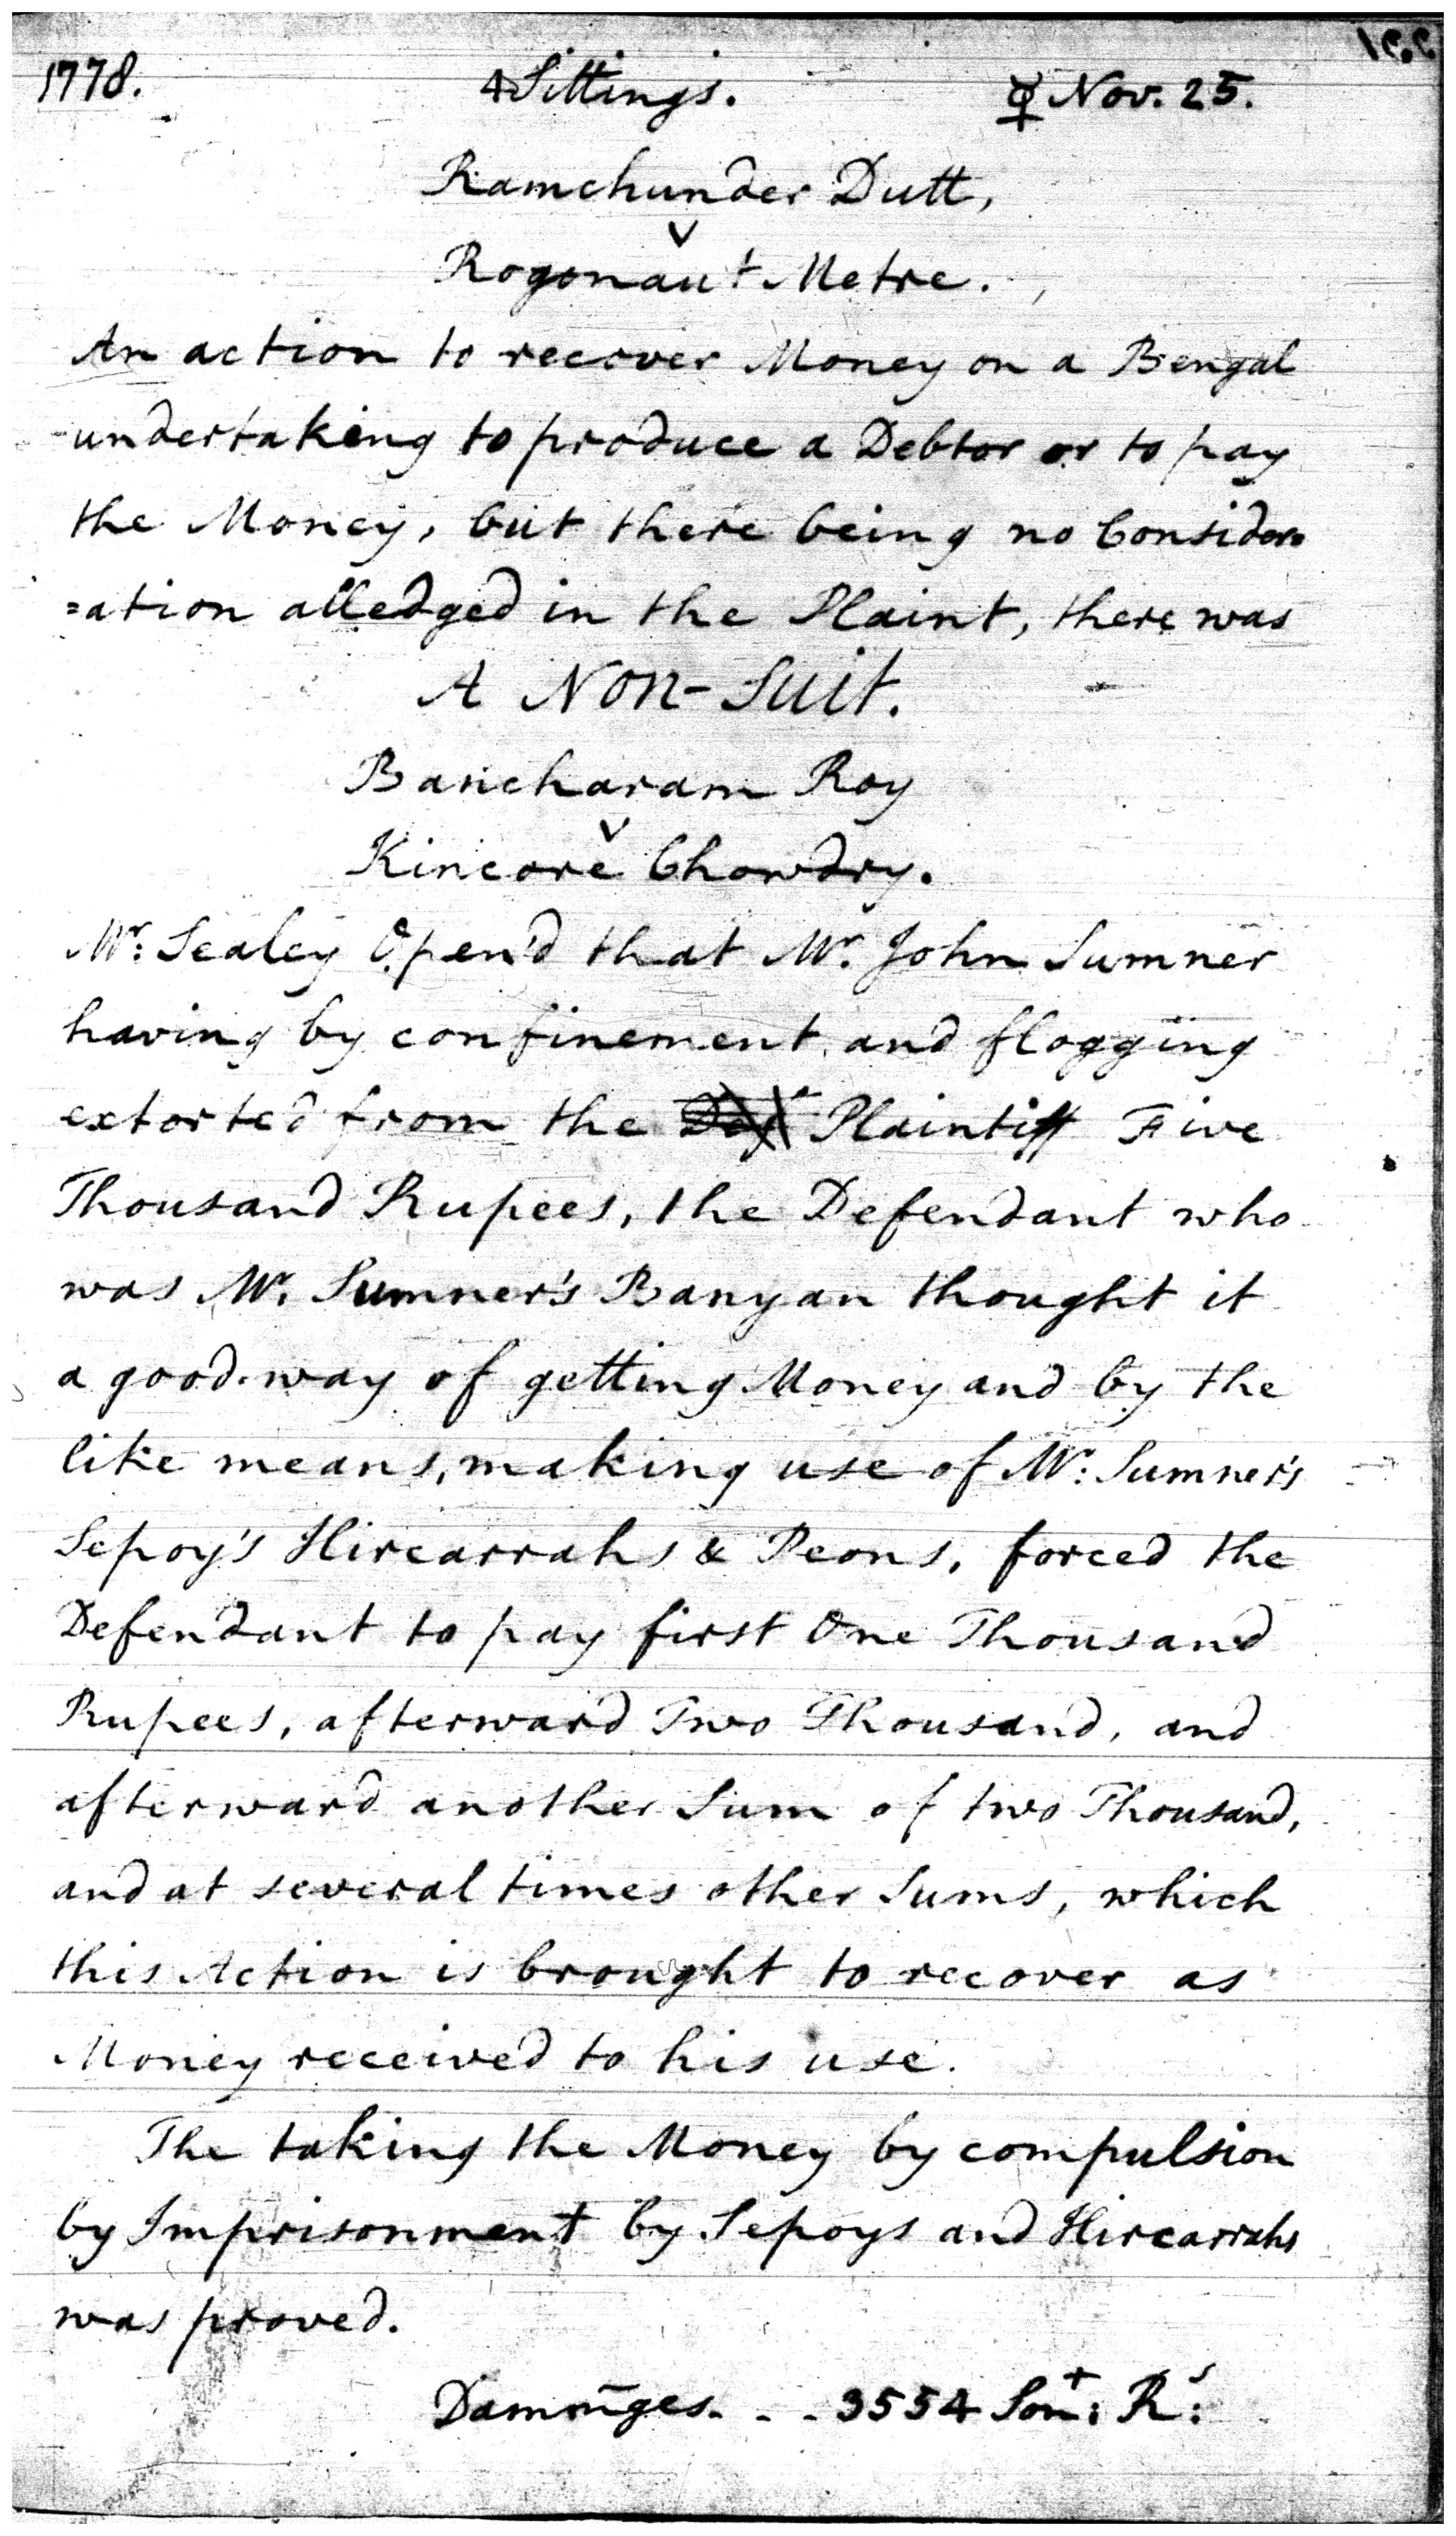 1778. 4 Sittings. ☿ Nov. 25.
Ramchunder Dutt,
v
Rogonaut Metre.
An action to recover Money on a Bengal
undertaking to produce a Debtor or to pay
the Money, but there being no Consider=
=ation alledged in the Plaint, there was
A Non-Suit.
Bancharam Roy
v
Kincore Chowdry.
Mr: Sealey Open'd that Mr. John Sumner
having by confinement and flogging
extorted from the Plaintiff Five
Thousand Rupees, the Defendant who
was Mr. Sumner's Banyan thought it
a good way of getting Money and by the
like means, making use of Mr: Sumner's
Sepoy's Hircarrahs & Peons, forced the
Defendant to pay first One Thousand
Rupees, afterward Two Thousand, and
afterward another Sum of two Thousand,
and at several times other Sums, which
this Action is brought to recover as
Money received to his use.
The taking the Money by compulsion
by Imprisonment by Sepoys and Hircarrahs
was proved.
Dammages. . . 3554 Sont: Rs: